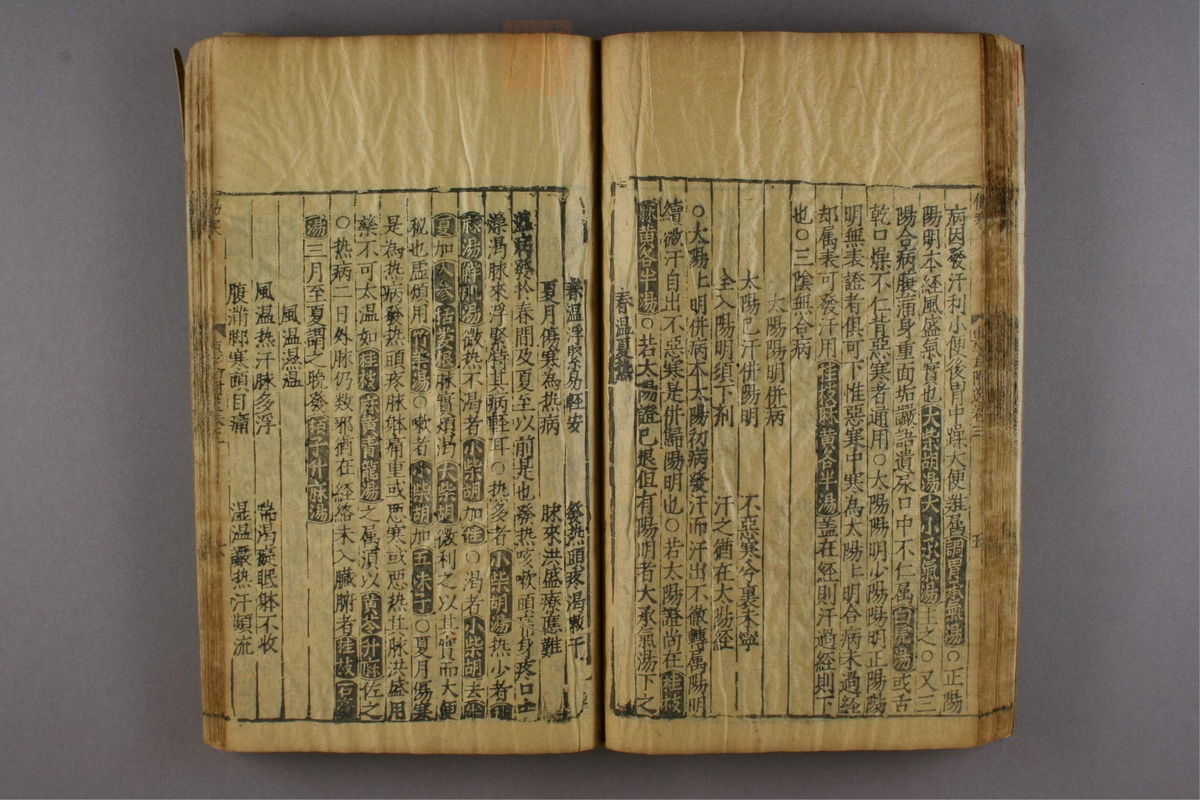 病因發汗利小便後胃中躁大便難属調胃承氣湯○正陽
陽明本經風盛氣實也大柴胡湯大小承氣湯主之○又三
陽合病腹滿身重面垢譫語遺尿口中不仁属白虎湯或舌
乾口燥不仁背惡寒者通用○太陽陽明少陽陽明正陽陽
明無表證者俱可下惟惡寒中寒為太陽上明合病未過經
却属表可發汗用桂枝麻黄各半湯盖在經則汗過經則下
也○三陰無合病
太陽陽明併病
太陽已汗併陽明 不惡寒兮裏未寧
全入陽明須下剤 汗之猶在太陽經
○太陽上明併病本太陽初病發汗而汗出不徹轉属陽明
續微汗自出不惡寒是併歸陽明也○若太陽證尚在桂枝
麻黄各半湯○若太陽證已退但有陽明者大承氣湯下之
春温夏熱
春温浮緊易輕安 發熱頭疼渴數干
夏月傷寒為熱病 脉來洪盛療應難
温病發於春間及夏至以前是也發熱咳嗽頭疼身疼口
燥渴脉來浮緊特其病輕耳○熱多者小柴胡湯熱少者
麻湯解肌湯微热不渴者小柴胡加桂○渴者小柴胡去
夏加人参栝蔞根脉實煩渴大柴胡微利之以其實而大便
秘也虚煩用竹葉湯○嗽者小柴胡加五味子○夏月傷寒
是為热病發热頭疼脉躰痛重或惡寒或惡热其脉洪盛用
藥不可太温如桂枝麻黄青龍湯之属須以黄芩升麻佐之
○热病二日外脉仍数邪猶在經絡未入臟腑者桂枝石膏
湯三月至夏謂之晚發梔子升麻湯
風温濕温
風温热汗脉多浮 喘渴 眠躰不收
腹滿脚寒頭目痛 湿温 热汗頻流